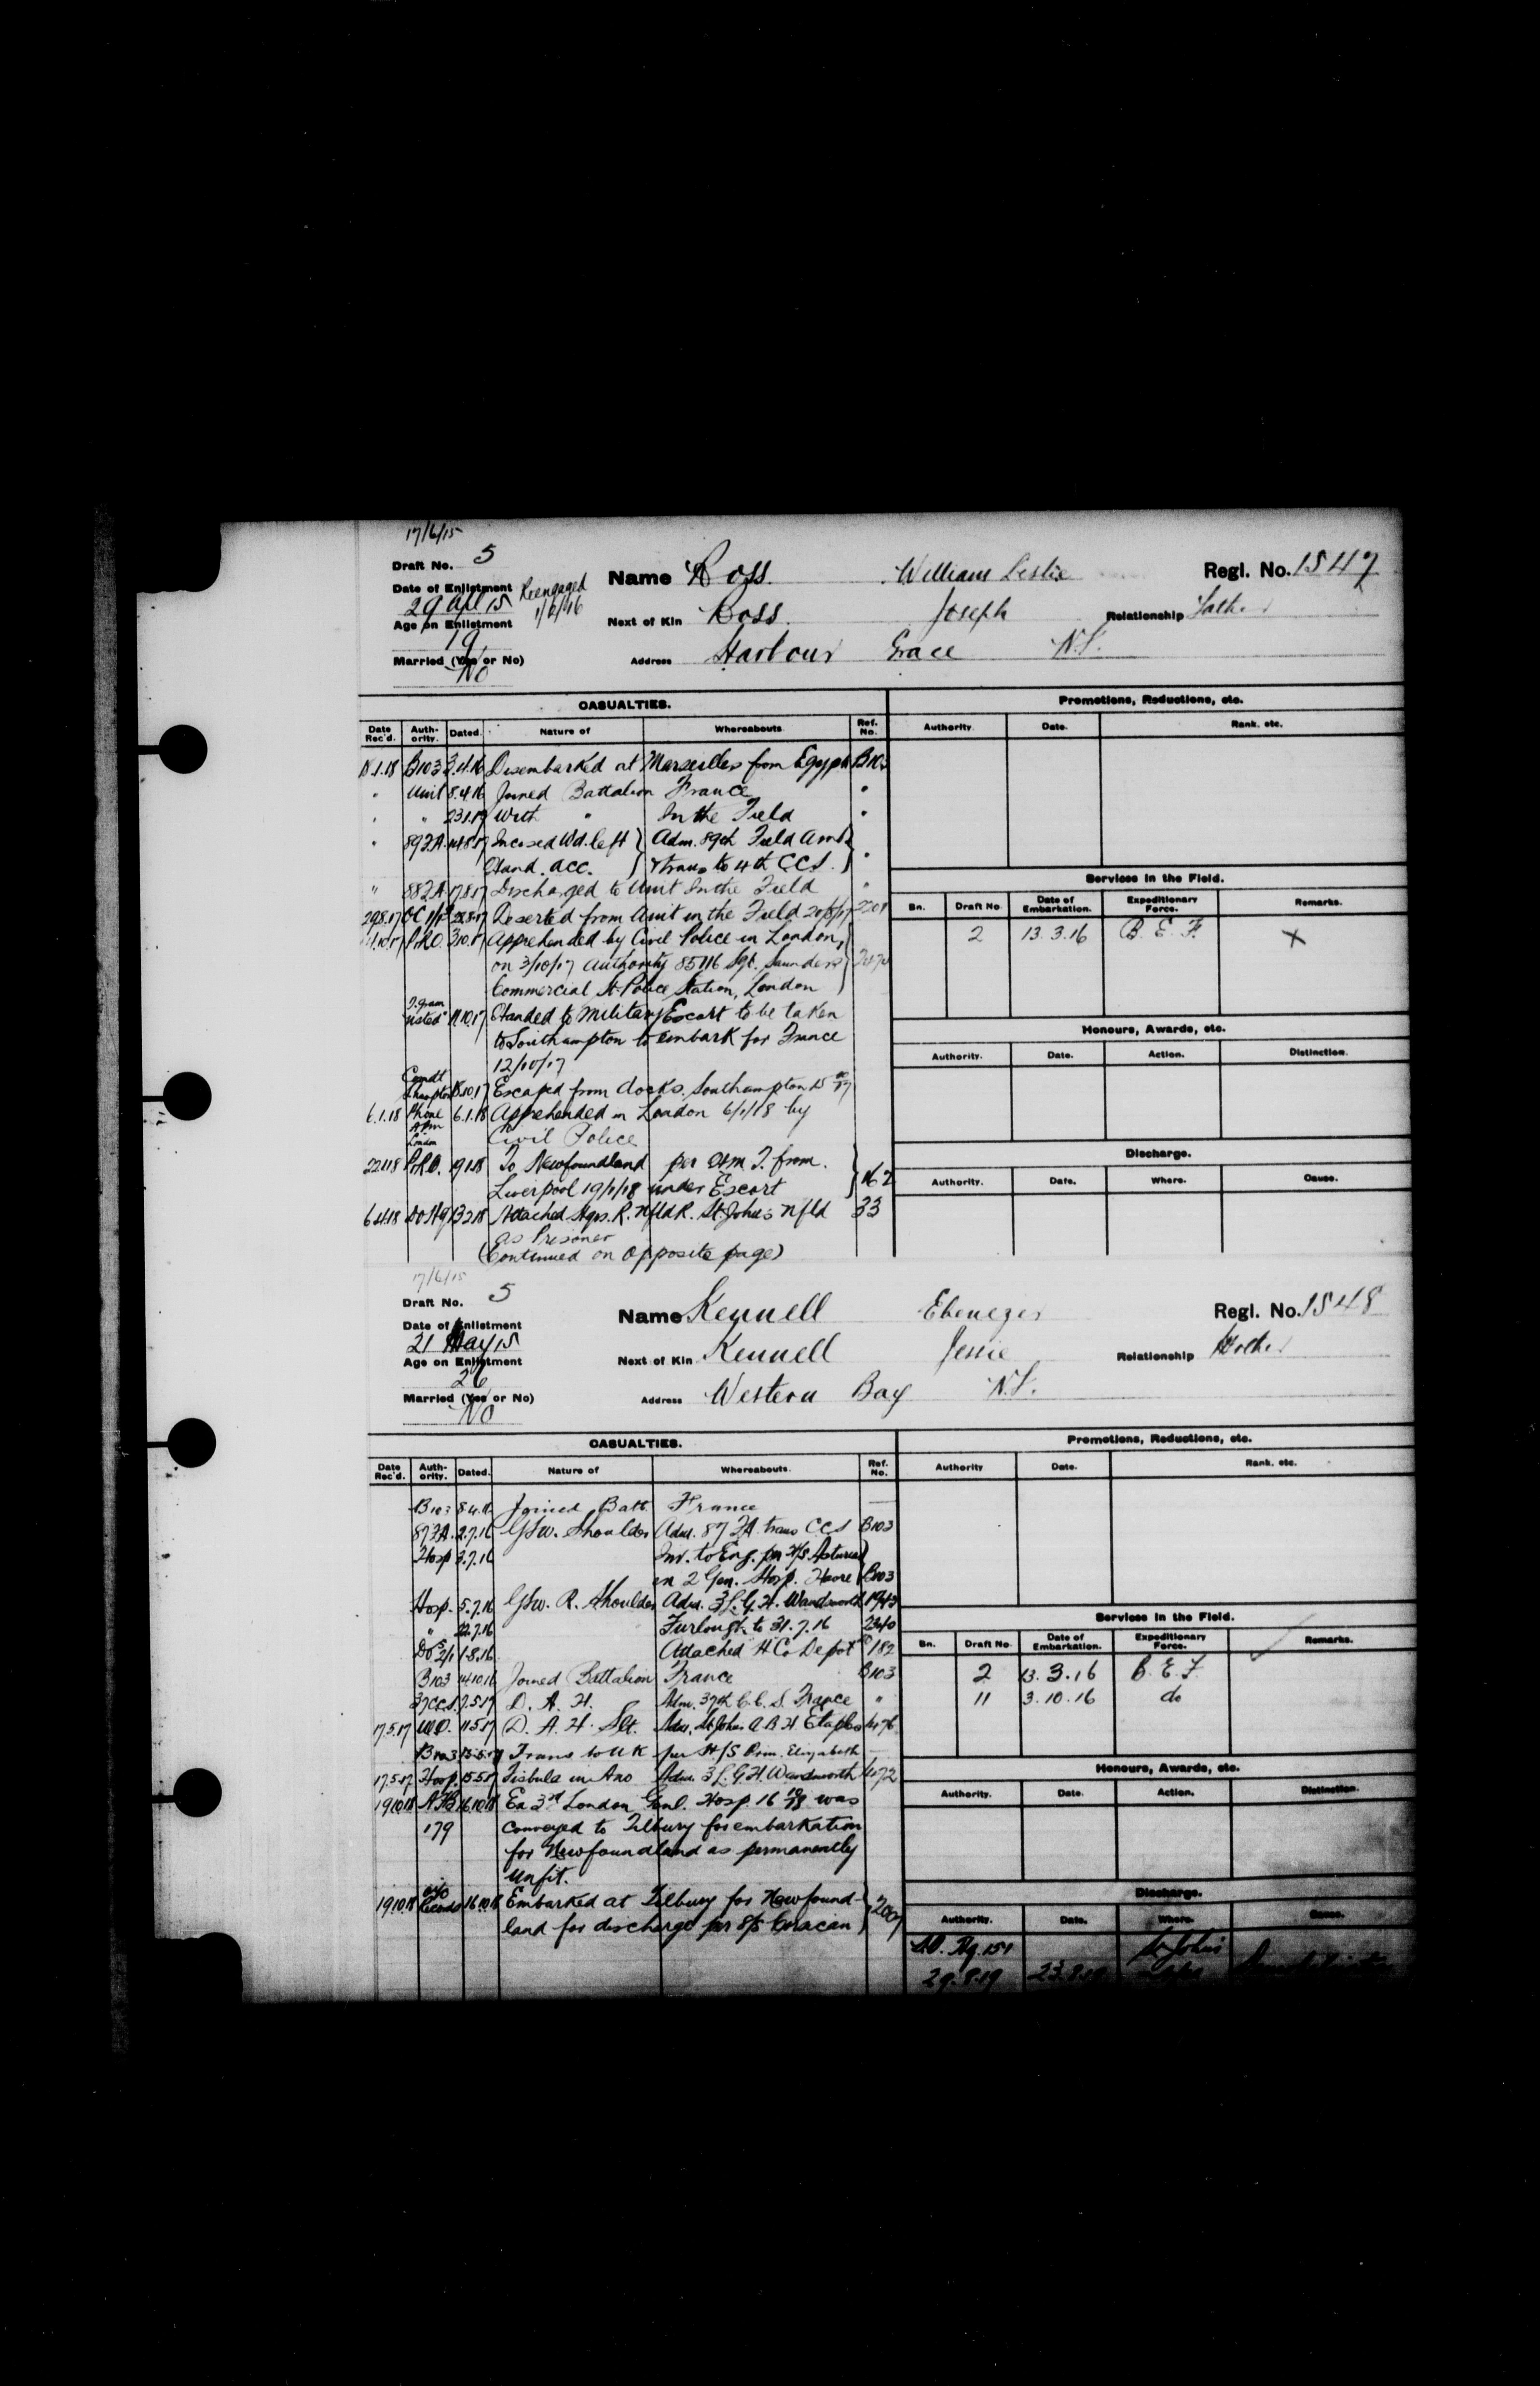 17/6/15
Draft No. 5
Date of Enlistment Reengaged
29 Apl 15 1/2/16
Age on Enlistment
19
Married (Yes or No)
No
Name Ross. William Leslie Regl. No. 1547
Next of Kin Ross. Joseph Relationship Father
Address Harbour Grace N.F.
CASUALTIES.
Date Rec'd. Authority. Dated. Nature of Whereabouts Ref. No.
B103 Disembarked at Marseilles from Egypt B103
" Unit 8.4.16 Joined Battalion France "
" " 23.1.17 With " In the Field "
" 89FA 14.8.17 Incised Wd. left Adm. 89th Field Amb.
Hand. acc. & trans to 4th CCS. "
" 88FA 17.8.17 Discharged to Unit In the Field "
29.8.17 Deserted from Unit in the Field
P.R.O. 3.10.17 Apprehended by Civil Police in London,
on 3/10/17 authority 85116 Sgt. Saunders
Commercial St. Police Station, London
11.10.17 Handed to Military Escort to be taken
to Southampton to embark for France
12/10/17
Escaped from docks, Southampton
6.1.18 Phone 6.1.18 Apprehended in London 6/1/18 by
APM London Civil Police
22.1.18 P.R.O. 19.1.18 To Newfoundland per from
Liverpool 19/1/18 under Escort 162
6.4.18 Attached Hqrs. R. Nfld R. St. John's Nfld 33
as Prisoner
(Continued on Opposite page)
Promotions, Reductions, etc.
Authority. Date. Rank, etc.
Services in the Field.
Bn. Draft No. Date of Embarkation. Expeditionary Force. Remarks.
2 13.3.16 B.E.F. X
Honours, Awards, etc.
Authority. Date. Action. Distinction.
Discharge.
Authority. Date. Where. Cause.
17/6/15
Draft No. 5
Date of Enlistment
21 May 15
Age on Enlistment
26
Married (Yes or No)
No
Name Kennell Ebenezer Regl. No. 1548
Next of Kin Kennell Jessie Relationship Mother
Address Western Bay N.F.
CASUALTIES.
Date Rec'd. Authority. Dated. Nature of Whereabouts. Ref. No.
B103 8.4.16 Joined Batt. France
87FA 2.7.16 GSW. Shoulder Adm. 87 FA trans CCS B103
Hosp 3.7.16 Inv. to Eng. per H/S Asturias
ex 2 Gen. Hosp. Havre B103
Hosp. 5.7.16 GSW. R. Shoulder Adm. 3 L.G.H. Wandsworth
" 22.7.16 Furlough to 31.7.16 2340
1.8.16 Attached H Co Depot 182
B103 14.10.16 Joined Battalion France B103
37CCS 7.5.17 D. A. H. Adm. 37th C.C.S. France "
17.5.17 W.O. 11.5.17 D. A. H. Slt. Adm. St John A B H Etaples 4476
B103 15.5.17 Trans to UK per H/S Prin. Elizabeth
17.5.17 Hosp. 15.5.17 Fistula in Ano Adm. 3 L.G.H. Wandsworth 4472
19.10.18 AFB 16.10.18 Ex 3rd London Genl. Hosp. 16 10/18 was
179 conveyed to Tilbury for embarkation
for Newfoundland as permanently
unfit.
19.10.18 Records 16.10.18 Embarked at Tilbury for Newfound-
land for discharge per S/S
Promotions, Reductions, etc.
Authority Date. Rank, etc.
Services in the Field.
Bn. Draft No. Date of Embarkation. Expeditionary Force. Remarks.
2 13.3.16 B.E.F.
11 3.10.16 do
Honours, Awards, etc.
Authority. Date. Action. Distinction.
Discharge.
Authority. Date. Where. Cause.
151 St Johns
29.8.19 23.8.19